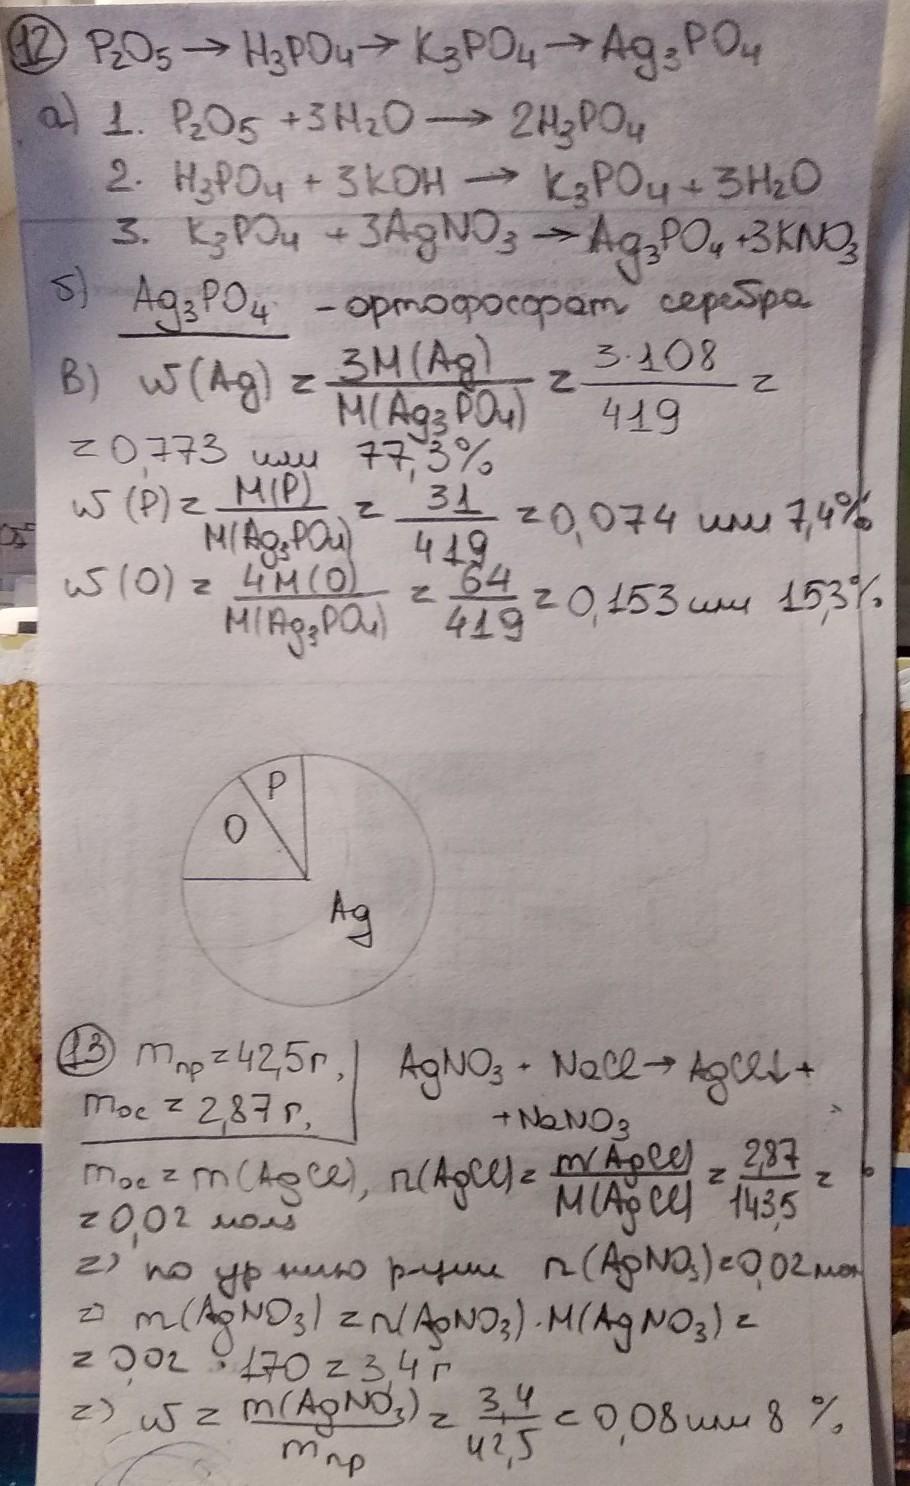 12 P₂O₅ → H₃PO₄ → K₃PO₄ → Ag₃PO₄
а) 1. P₂O₅ + 3H₂O → 2H₃PO₄
2. H₃PO₄ + 3KOH → K₃PO₄ + 3H₂O
3. K₃PO₄ + 3AgNO₃ → Ag₃PO₄ + 3KNO₃
б) Ag₃PO₄ - ортофосфат серебра
в) w(Ag) = 3M(Ag) / M(Ag₃PO₄) = 3·108 / 419 =
= 0,773 или 77,3%
w(P) = M(P) / M(Ag₃PO₄) = 31 / 419 = 0,074 или 7,4%
w(O) = 4M(O) / M(Ag₃PO₄) = 64 / 419 = 0,153 или 15,3%
P
O
Ag
13 mпр = 42,5г, AgNO₃ + NaCl → AgCl↓ +
mос = 2,87г, + NaNO₃
mос = m(AgCl), n(AgCl) = m(AgCl) / M(AgCl) = 2,87 / 143,5 =
= 0,02 моль
=> по ур-нию р-ции n(AgNO₃) = 0,02 мол
=> m(AgNO₃) = n(AgNO₃)·M(AgNO₃) =
= 0,02 · 170 = 3,4 г
=> w = m(AgNO₃) / mпр = 3,4 / 42,5 = 0,08 или 8 %